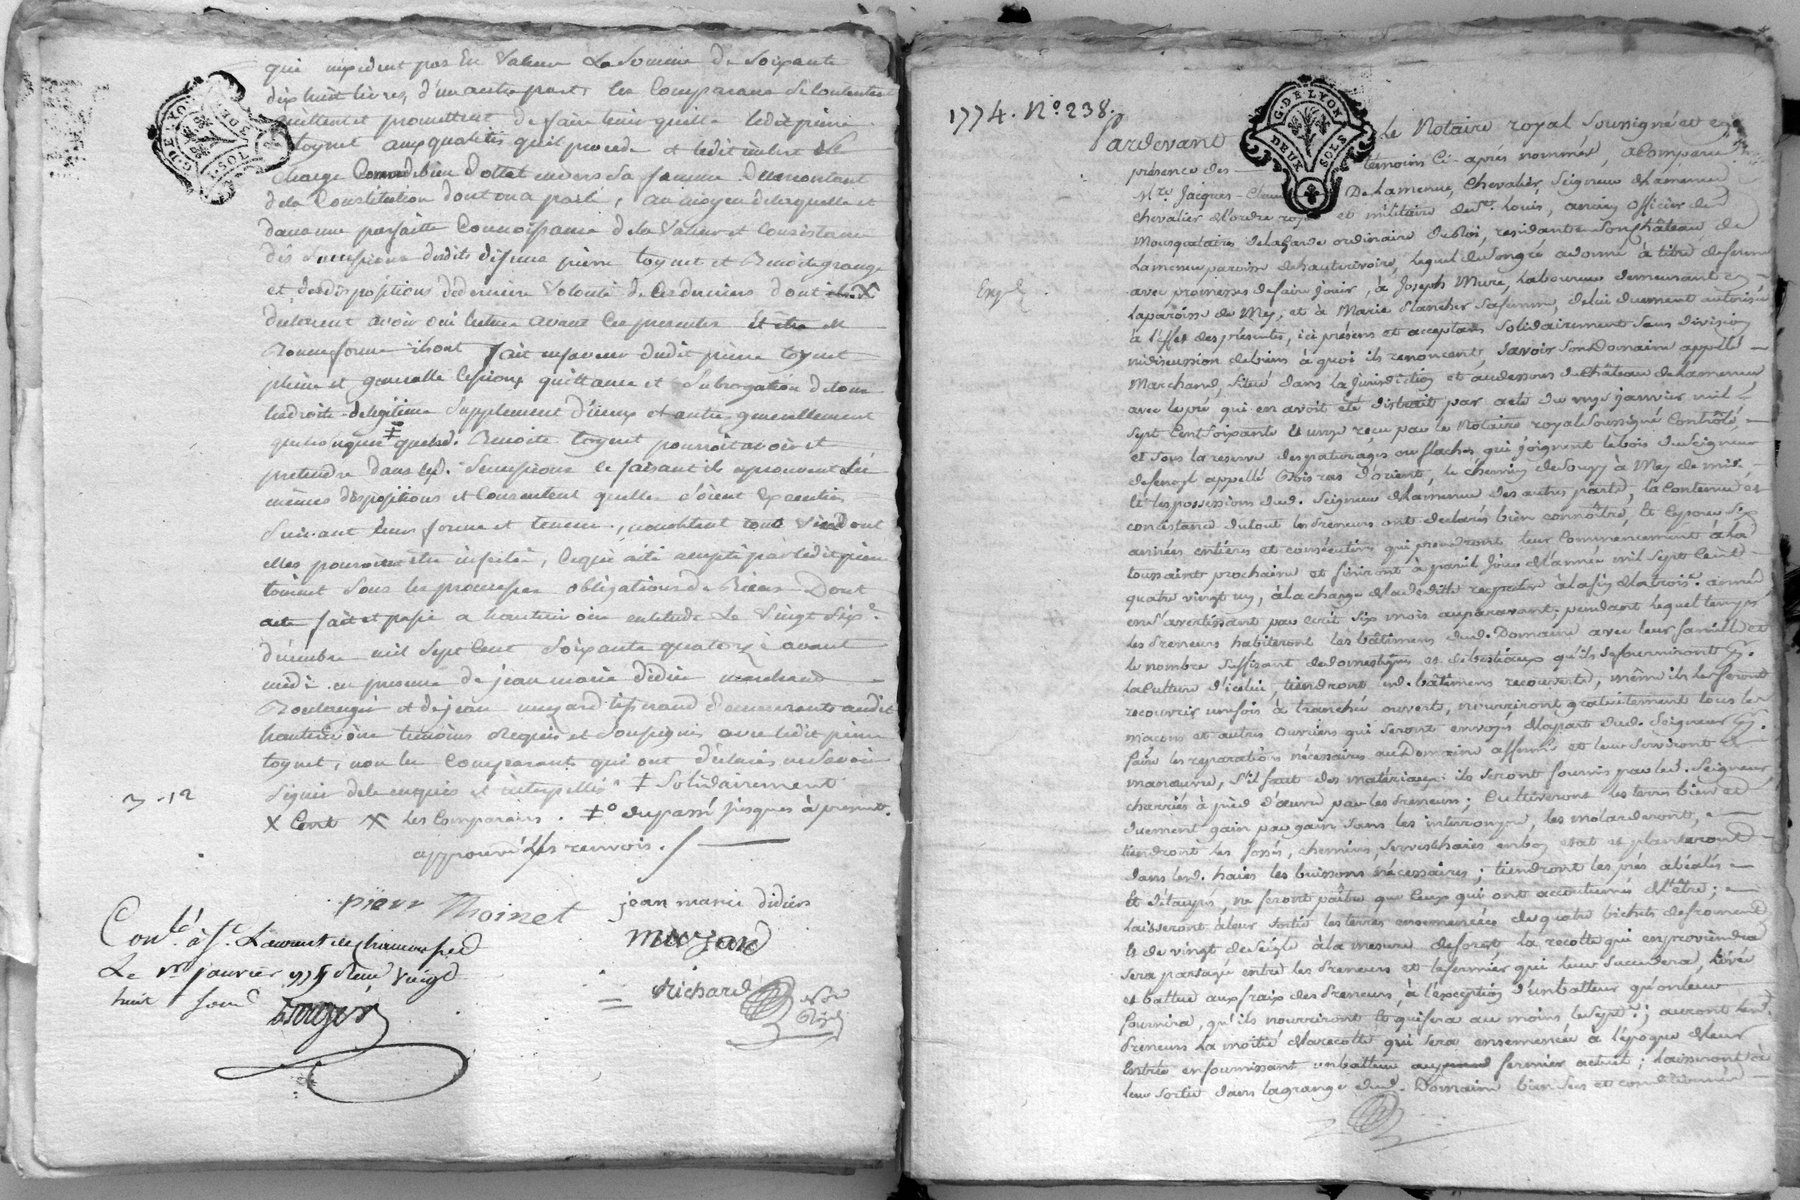 G. DE LYON
DEUX SOLS
qui n'excedent pas En Valeur La Somme De Soixante
dix huit livres, d'une autre part les Comparans Se Contentent
quittent et promettent de faire tenir quitte ledit pierre
toynet aux qualités qu'il procede et ledit
charge envers sa femme Du montant
de la Constitution dont on a parlé, au moyen de laquelle et
dans une parfaitte Connoissance De la Valeur et Consistance
des Successions desdits defunts pierre toynet et Benoite grange
et des dispositions de derniere Volonté de Ces derniers dont X
declarent avoir oui lecture avant Ces presentes Et
Bonne forme ils ont fait en faveur dudit pierre toynet
pleine et generalle Cession, quittance et Subrogation de tous
les droits de legitime Supplement d'iceux et autres generallement
quelconques ‡ que lad. Benoite toynet pourroit avoir et
pretendre dans lesd. Successions ce faisant ils aprouvent les
mêmes dispositions et Consentent quelles soient Executées
Suivant leur forme et teneur, nonobstant tout Vice dont
elles pourroient être infectées, Ce qui a été accepté par ledit pierre
toinet Sous les promesses obligations de Biens Dont
acte fait et passé a hauterivoire en étude Le Vingt Six
décembre mil Sept Cent Soixante quatorze avant
midi en presence de jean marie Didier marchand
Boulanger et de jean muzard tisserand demeurants audit
hauterivoire temoins Requis et Soussignés avec ledit pierre
toynet, non les Comparants qui ont déclarés ne Savoir
Signer de ce enquis et interpellés ‡ Solidairement
3 - 12
X Cent X les Comparans. ‡° du passé jusques à present.
approuvé les renvois.
pierr Thoinet jean marie didier
muzard
Richard
Con.lé à S.t Laurent de Chamousset
Le janvier 1775 Reçu Vingt
huit sous
1774. N.o 238.
G. DE LYON
DEUX SOLS
Pardevant le Notaire royal Soussigné et en
présence des témoins Ci-aprés nommés, a Comparu
M.re Jacques-Claude De Lamenue, Chevalier, Seigneur de Lamenue
chevalier de l'ordre royal et militaire de S.t Louis, ancien officier des
Mousquetaires de la garde ordinaire du Roi, residant en son château de
Lamenue paroisse de hauterivoire, lequel de son gré a donné à titre de ferme
Exp.é
avec promesses de faire jouir, à Joseph Mure, laboureur demeurant en
la paroisse de Mey, et à Marie Plancher sa femme, de lui duement autorisée
à l'effet des présentes, ici présens et acceptans solidairement sans division
ni discussion de biens à quoi ils renoncent, savoir son Domaine appellé
Marchand, situé dans la jurisdiction et au dessous du château de Lamenue
avec le pré qui en avoit été distrait par acte du janvier mil
sept Cent soixante le onze reçu par le Notaire royal Soussigné Contrôlé,
et sous la reserve des paturages ou flaches qui joignent le bois du Seigneur
appellé d'orient, le chemin de Souzy à Mey de midi
et les possessions dud. Seigneur de Lamenue des autres parts, la Contenue et
consistance du tout les Preneurs ont declarés bien connoître, et ce pour Six
années entières et consécutives qui prendront leur Commencement à la
toussaints prochaine et finiront à pareil jour de l'année mil sept Cent
quatre vingt un, à la charge de la dédite respective à la fin de la trois.e année
en s'avertissant par écrit six mois auparavant; pendant lequel temps
les Preneurs habiteront les bâtimens dud. Domaine avec leur famille et
le nombre suffisant de domestiques et de bestiaux qu'ils se fourniront p.r
la Culture d'icelui, tiendront led. bâtimens recouverts, même ils les feront
recouvrir une fois à tranché ouvert, nourriront gratuitement tous les
maçons et autres ouvriers qui seront envoyés de la part dud. Seigneur p.r
faire les reparations nécessaires au Domaine affermé et leur serviront de
manœuvre, s'il faut des matériaux ils seront fournis par led. Seigneur,
charriés à pied d'œuvre par les Preneurs; Cultiveront les terres bien et
duement gain par gain sans les interrompre, les molarderont,
tiendront les fossés, chemins, serves et haies en bon etat et planteront
dans lesd. haies les buissons nécessaires; tiendront les prés abéalés
et détaupés, ne feront paître que ceux qui ont accoutumés de l'être;
laisseront à leur sortie les terres ensemencées de quatre bichets de froment
et de vingt de seigle à la mesure de forest, la recolte qui en proviendra
sera partagé entre les Preneurs et le fermier qui leur succedera, levée
et battue aux fraix des Preneurs, à l'exception d'un batteur qu'on leur
fournira, qu'ils nourriront et qui sera au moins le sept.e; auront lesd.
Preneurs la moitié de la recolte qui sera ensemencée à l'époque de leur
entrée en fournissant un batteur au fermier actuel; laisseront à
leur sortie dans la grange dud. Domaine bien secs et conditionnés